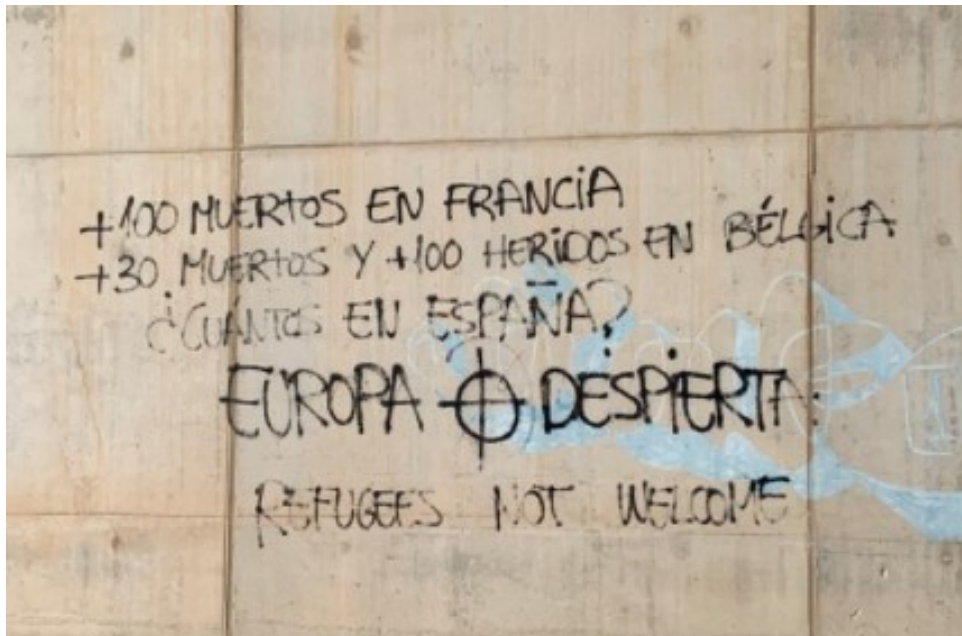 +100 MUERTOS EN FRANCIA
+30 MUERTOS Y +100 HERIDOS EN BÉLGICA
¿CUÁNTOS EN ESPAÑA?
EUROPA DESPIERTA
REFUGEES NOT WELCOME